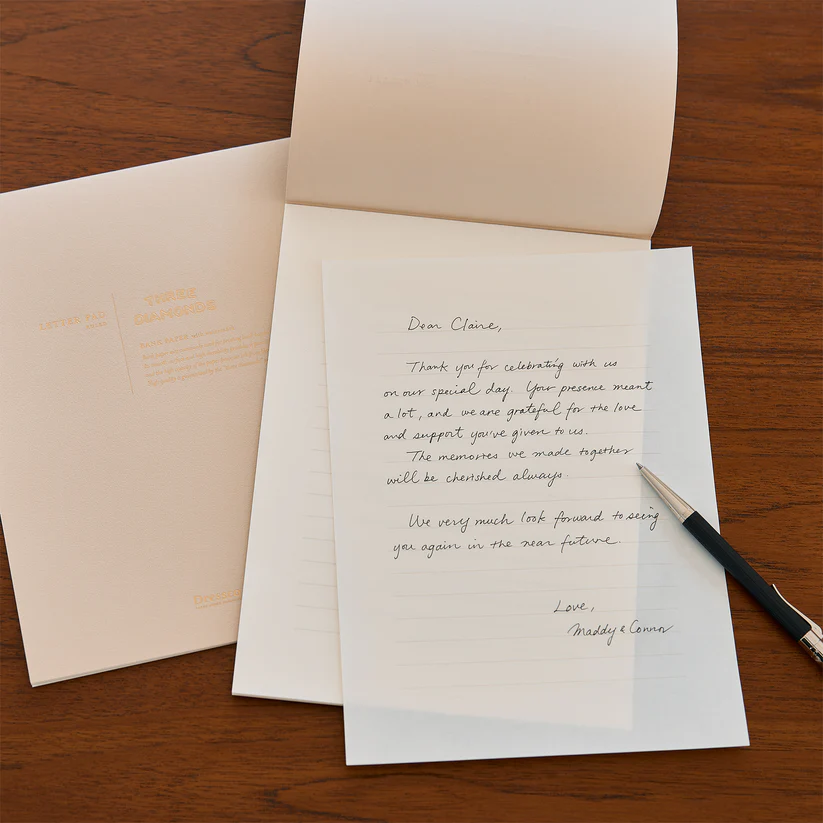 LETTER PAD
THREE
DIAMONDS
BANK PAPER
Dear Claire,
Thank you for celebrating with us
on our special day. Your presence meant
a lot, and we are grateful for the love
and support you've given to us.
The memories we made together
will be cherished always.
We very much look forward to seeing
you again in the near future.
Love,
Maddy & Connor